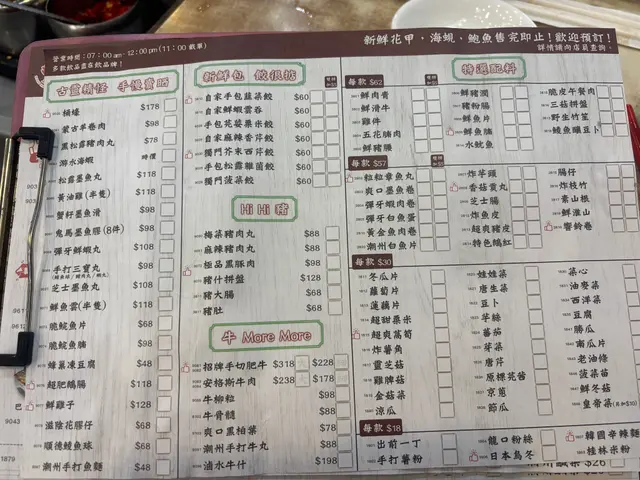 新鮮花甲．海蜆．鮑魚售完即止！歡迎預訂！
詳情請向店員查詢．
營業時間：07:00 am - 12:00 pm (11:00 截單)
多款飲品盡在飲品牌！
古靈精怪 手慢賣晒
桶蠔 $178
蒙古羊卷肉 $98
黑松露豬肉丸 $78
游水海蝦 時價
松露墨魚丸 $118
黃油雞(半隻) $118
蟹籽墨魚滑 $98
鬼馬墨魚膠(8件) $98
彈牙鮮蝦丸 $108
手打三寶丸 $98
芝士墨魚丸 $108
鮮魚雲(半隻) $118
脆鯇魚片 $68
脆鯇魚腩 $68
蜂巢凍豆腐 $48
超肥鵝腸 $118
鮮雞子 $128
滋陰花膠仔 $68
順德鯪魚球 $68
潮州手打魚麵 $48
新鮮包 餃很掂
自家手包韮菜餃 $60
自家鮮蝦雲吞 $60
手包花菇粟米餃 $60
自家麻辣香芹餃 $60
獨門芥末西芹餃 $60
手包松露雜菌餃 $60
獨門菠菜餃 $60
Hi Hi 豬
梅菜豬肉丸 $88
麻辣豬肉丸 $88
極品黑豚肉 $98
豬什拼盤 $128
豬大腸 $68
豬肚 $68
牛 More More
招牌手切肥牛 $318 $228
安格斯牛肉 $238 $178
牛柳粒 $98
牛骨髓 $88
爽口黑柏葉 $78
潮州手打牛丸 $88
滷水牛什 $198
特選配料
每款 $62
鮮肉青
鮮滑牛
雞件
五花腩肉
鮮豬腰
鮮豬潤
豬粉腸
鮮魚腩
水魷魚
脆皮午餐肉
三菇拼盤
野生竹笙
鯪魚釀豆卜
每款 $57
粒粒章魚丸
爽口墨魚卷
彈牙魚蛋卷
彈牙白魚蛋
黃金魚肉卷
潮州白魚片
炸芋頭
香菇貢丸
芝士腸
炸魚皮
超爽豬皮
特色鴨紅
腸仔
炸枝竹
素山根
鮮淮山
響鈴卷
每款 $30
冬瓜片
蘿蔔片
蓮藕片
超甜粟米
超爽萵筍
炸薯角
靈芝菇
雞脾菇
金菇菜
涼瓜
娃娃菜
唐生菜
豆卜
芋絲
蕃茄
芽菜
唐芹
原條花茜
京葱
節瓜
菜心
油麥菜
西洋菜
豆腐
勝瓜
南瓜片
老油條
菠菜苗
鮮冬菇
皇帝菜(另加$10)
每款 $18
出前一丁
手打薯粉
龍口粉絲
日本烏冬
韓國辛辣麵
桂林米粉
9043
1879